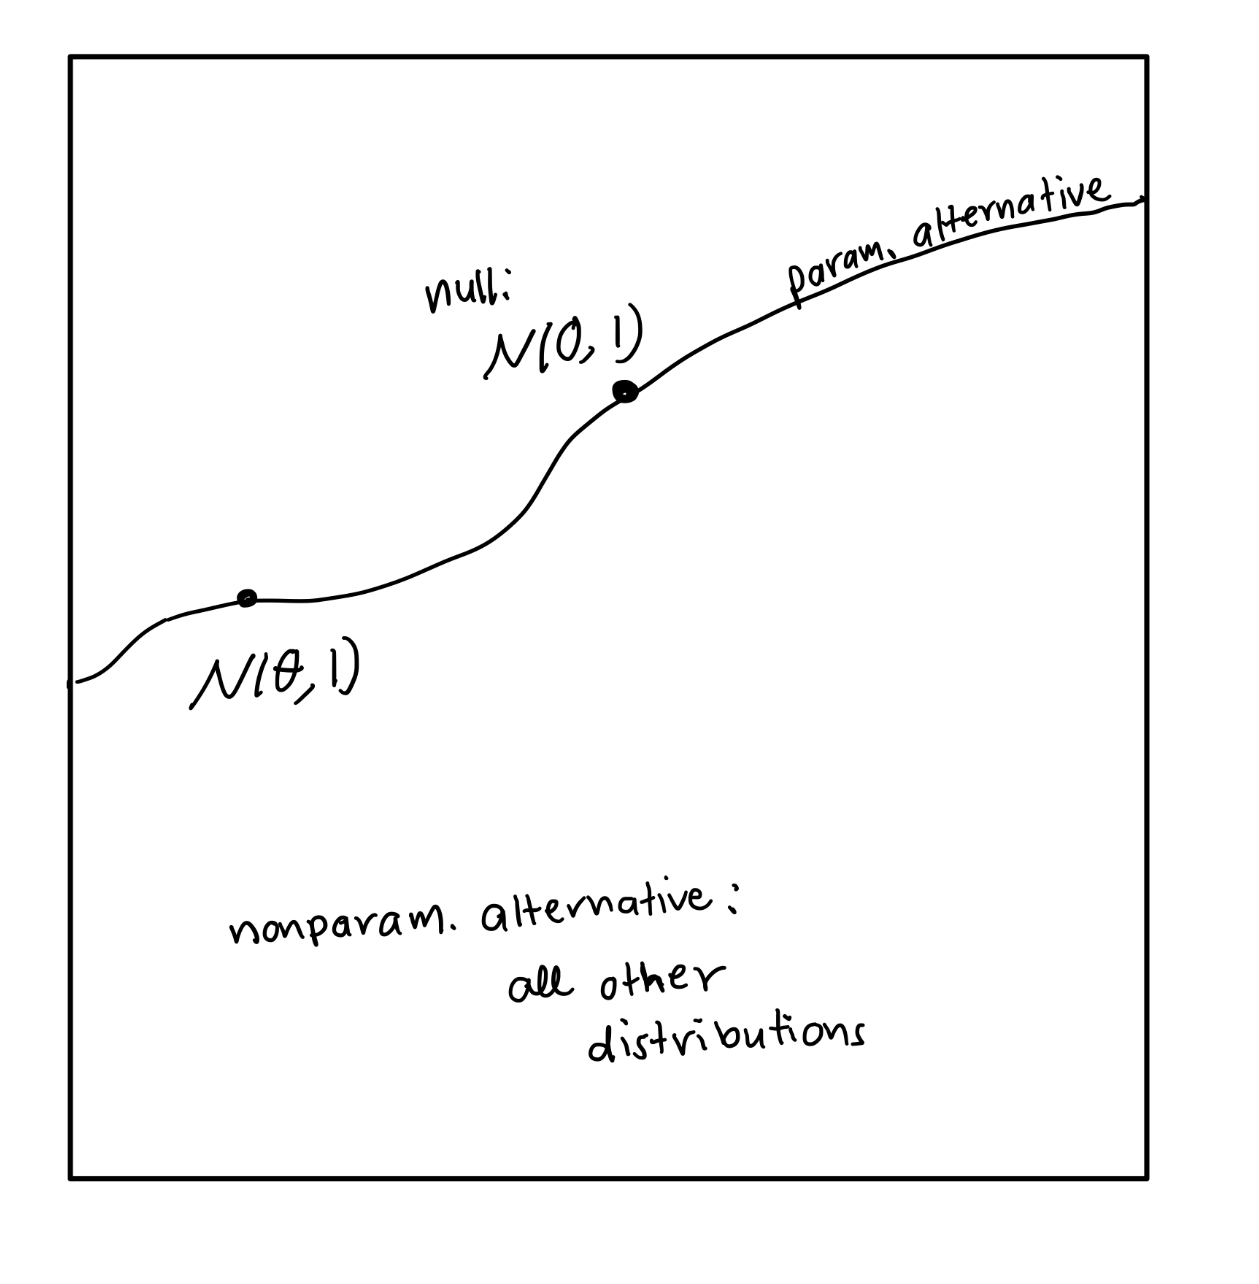 param. alternative
null:
N(0,1)
N(θ,1)
nonparam. alternative:
all other
distributions